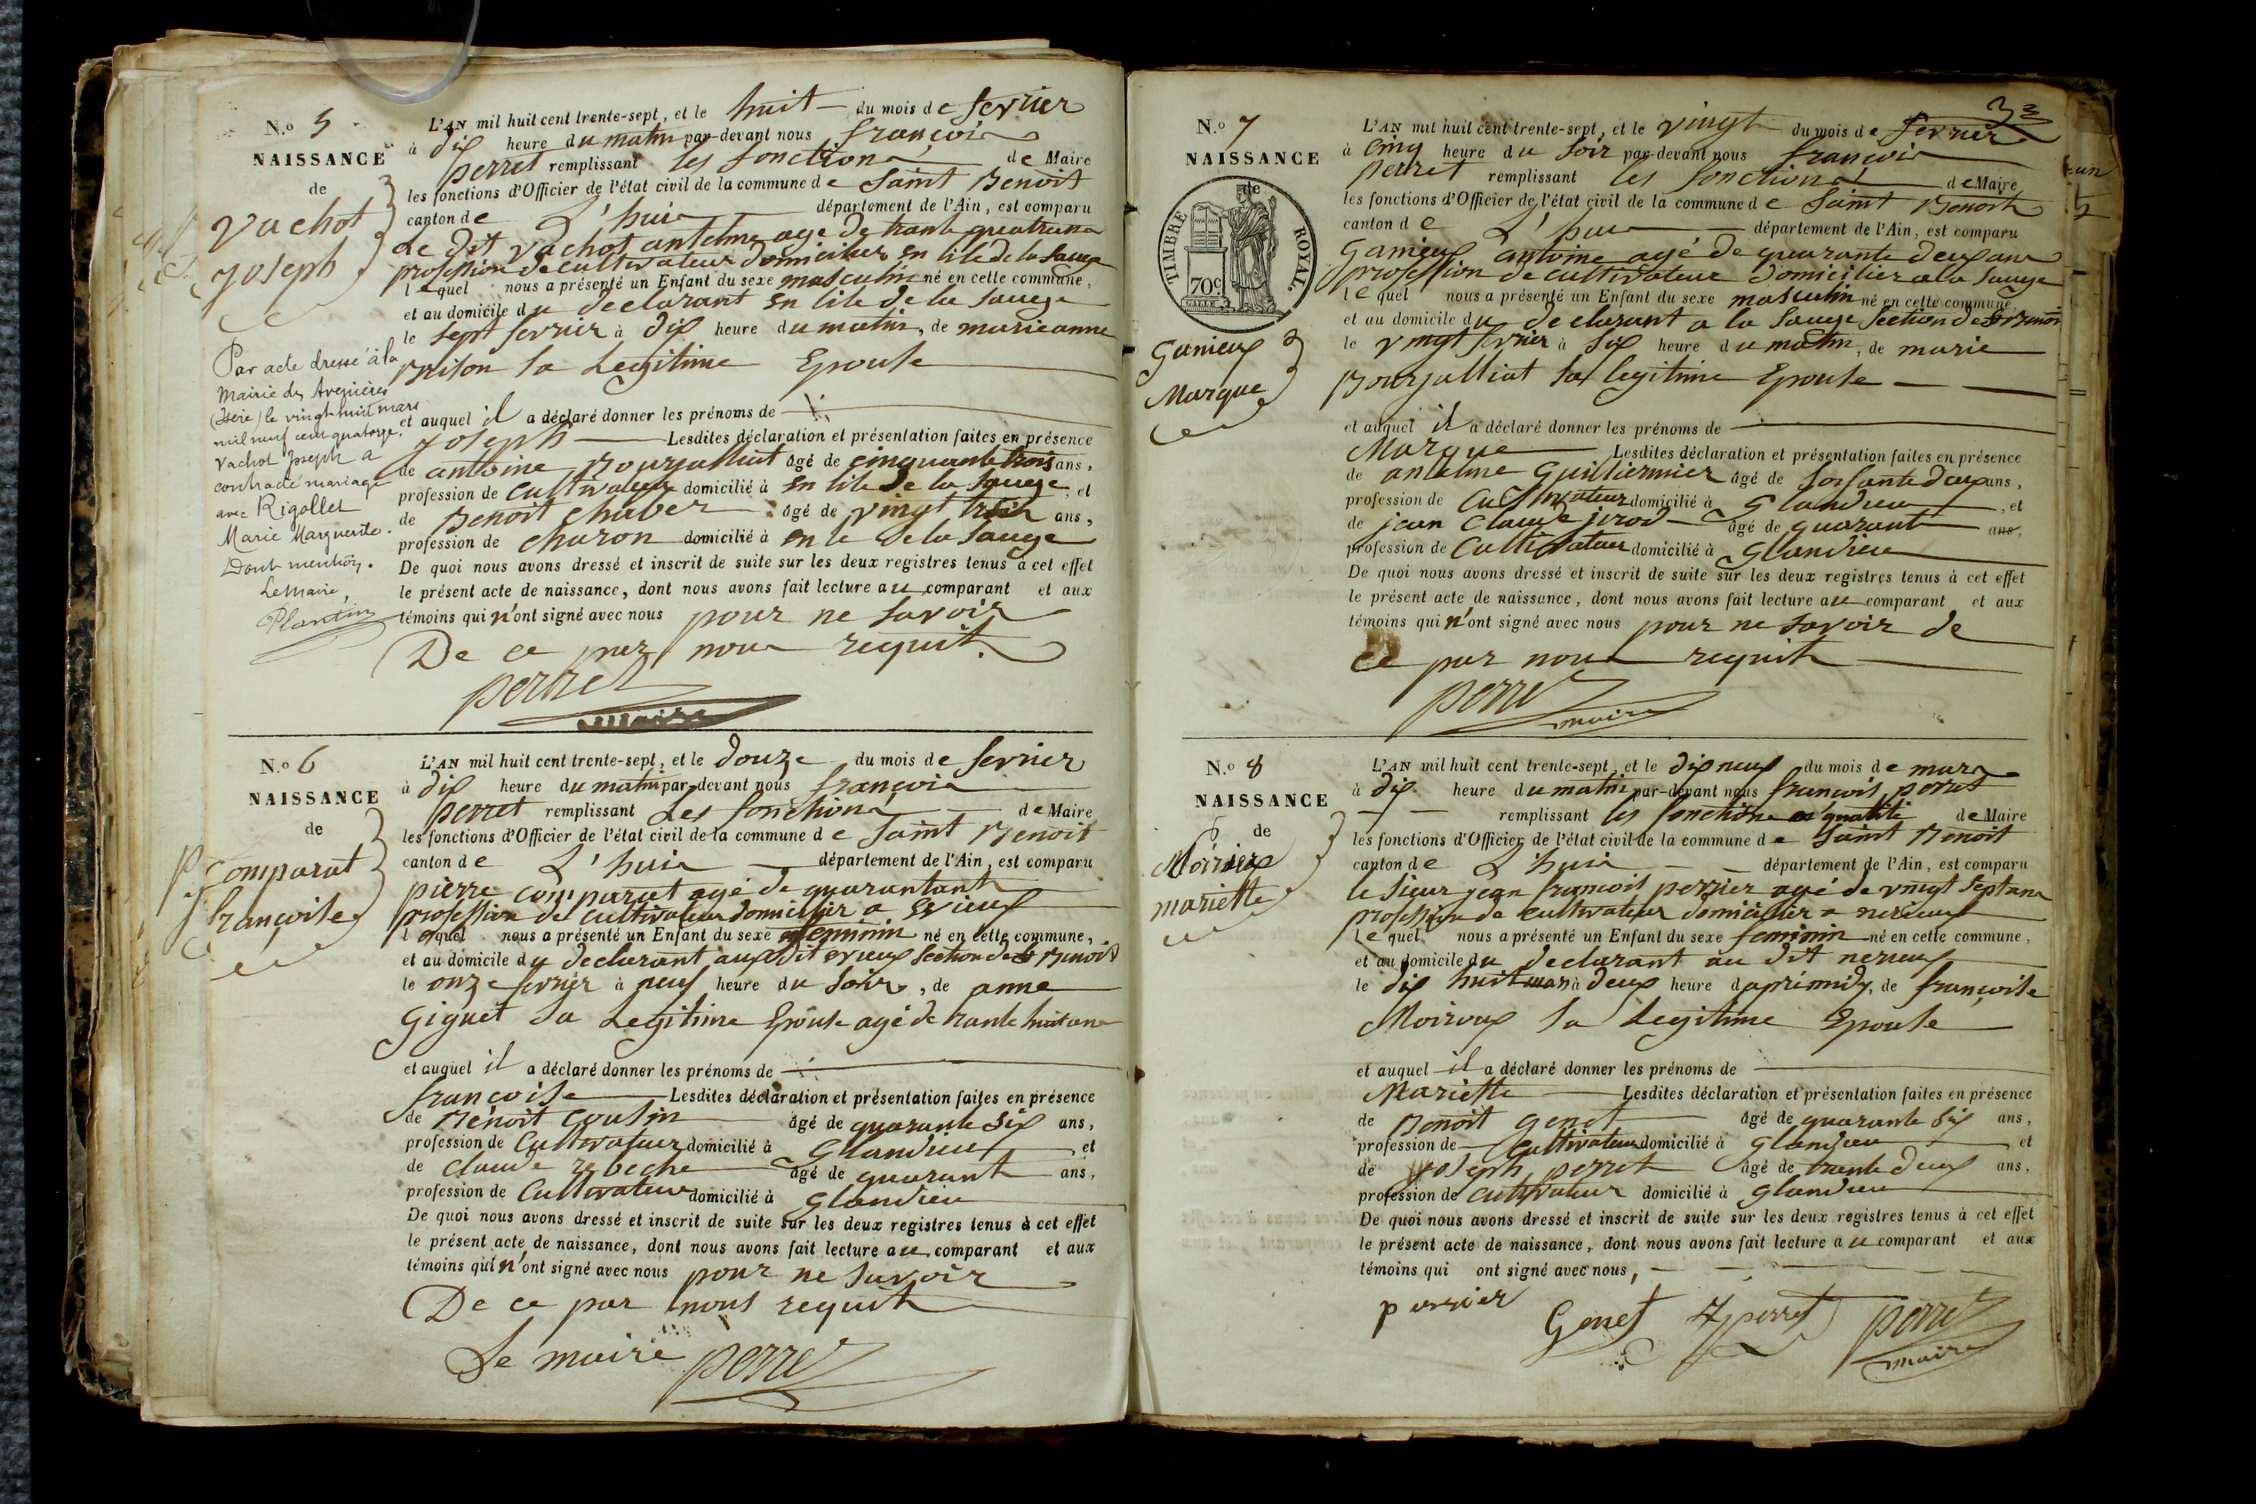 N.o 5
NAISSANCE
de
Vachot
joseph
L'AN mil huit cent trente-sept, et le huit du mois de fevrier
à dix heure du matin par-devant nous françois
perret remplissant les fonctions de Maire
les fonctions d'Officier de l'état civil de la commune de Saint Benoit
canton de L'huis département de l'Ain, est comparu
Le dit Vachot antelme age de trante quatre ans
profession de cultivateur domicilier en lile de la Sauge
lequel nous a présenté un Enfant du sexe masculin né en cette commune,
et au domicile du declarant en lile de la Sauge
le sept fevrier à dix heure du matin, de marie anne
Brison sa Legitime Epouse
et auquel il a déclaré donner les prénoms de
joseph Lesdites déclaration et présentation faites en présence
de antoine Bourjalliat âgé de cinquante trois ans,
profession de cultivateur domicilié à en lile de la Sauge, et
de Benoit chaber âgé de vingt trois ans,
profession de charon domicilié à en le de la Sauge
De quoi nous avons dressé et inscrit de suite sur les deux registres tenus à cet effet
le présent acte de naissance, dont nous avons fait lecture au comparant et aux
témoins qui n'ont signé avec nous pour ne savoir
De ce par nous requit.
perret
maire
Par acte dressé à la
Mairie des Avenières
(Isère) le vingt-huit mars
mil neuf cent quatorze,
Vachot Joseph a
contracté mariage
avec Rigollet
Marie Marguerite.
Dont mention.
Le Maire,
Plantin
N.o 6
NAISSANCE
de
Comparat
françoise
L'AN mil huit cent trente-sept, et le douze du mois de fevrier
à dix heure du matin par-devant nous françois
perret remplissant Les fonctions de Maire
les fonctions d'Officier de l'état civil de la commune de Saint Benoit
canton de L'huis département de l'Ain, est comparu
pierre comparat agé de quarantant
profession de cultivateur domicilier a Evieux
lequel nous a présenté un Enfant du sexe feminin né en cette commune,
et au domicile du declarant aux dit evieux Section de St Benoit
le onze fevrier à neuf heure du soir, de anne
Giguet Sa Legitime Epouse agé de trante huit ans
et auquel il a déclaré donner les prénoms de
françoise Lesdites déclaration et présentation faites en présence
de Benoit cousin âgé de quarante six ans,
profession de Cultivateur domicilié à Glandieu et
de claude rebeche âgé de quarant ans,
profession de Cultivateur domicilié à Glandieu
De quoi nous avons dressé et inscrit de suite sur les deux registres tenus à cet effet
le présent acte de naissance, dont nous avons fait lecture au comparant et aux
témoins qui n'ont signé avec nous pour ne savoir
De ce par nous requit
Le maire perret
33
N.o 7
NAISSANCE
de
TIMBRE ROYAL.
70c
Ganieux
Marque
L'AN mil huit cent trente-sept, et le vingt du mois de fevrier
à cinq heure du soir par-devant nous françois
perret remplissant les fonctions de Maire
les fonctions d'Officier de l'état civil de la commune de Saint Benoit
canton de L'huis département de l'Ain, est comparu
Ganieux antoine agé de quarante deux ans
profession de cultivateur domicilier a la Sauge
lequel nous a présenté un Enfant du sexe masculin né en cette commune,
et au domicile du declarant a la Sauge Section de St Benoit
le vingt fevrier à six heure du matin, de marie
Bourjalliat Sa legitime Epouse
et auquel il a déclaré donner les prénoms de
Marque Lesdites déclaration et présentation faites en présence
de antelme Guillermier âgé de soisante deux ans,
profession de Cultivateur domicilié à Glandieu, et
de jean Claude jirod âgé de quarant ans,
profession de Cultivateur domicilié à Glandieu
De quoi nous avons dressé et inscrit de suite sur les deux registres tenus à cet effet
le présent acte de naissance, dont nous avons fait lecture au comparant et aux
témoins qui n'ont signé avec nous pour ne savoir de
ce par nous requit
perret
maire
N.o 8
NAISSANCE
de
mariette
L'AN mil huit cent trente-sept, et le dix neuf du mois de mars
à dix heure du matin par-devant nous françois perret
remplissant les fonctions en qualité de Maire
les fonctions d'Officier de l'état civil de la commune de Saint Benoit
canton de L'huis département de l'Ain, est comparu
le Sieur jean françois perrier agé de vingt Sept ans
profession de cultivateur domicilier a nerieux
lequel nous a présenté un Enfant du sexe feminin né en cette commune,
et au domicile du declarant au dit nerieux
le dix huit mars à deux heure daprèmidy, de françoise
Moiroux Sa Legitime Epouse
et auquel il a déclaré donner les prénoms de
Mariette Lesdites déclaration et présentation faites en présence
de Benoit genet âgé de quarante six ans,
profession de Cultivateur domicilié à Glandieu et
de joseph perret âgé de trante deux ans,
profession de cultivateur domicilié à glandieu
De quoi nous avons dressé et inscrit de suite sur les deux registres tenus à cet effet
le présent acte de naissance, dont nous avons fait lecture au comparant et aux
témoins qui ont signé avec nous,
perrier Genet J perret perret
maire